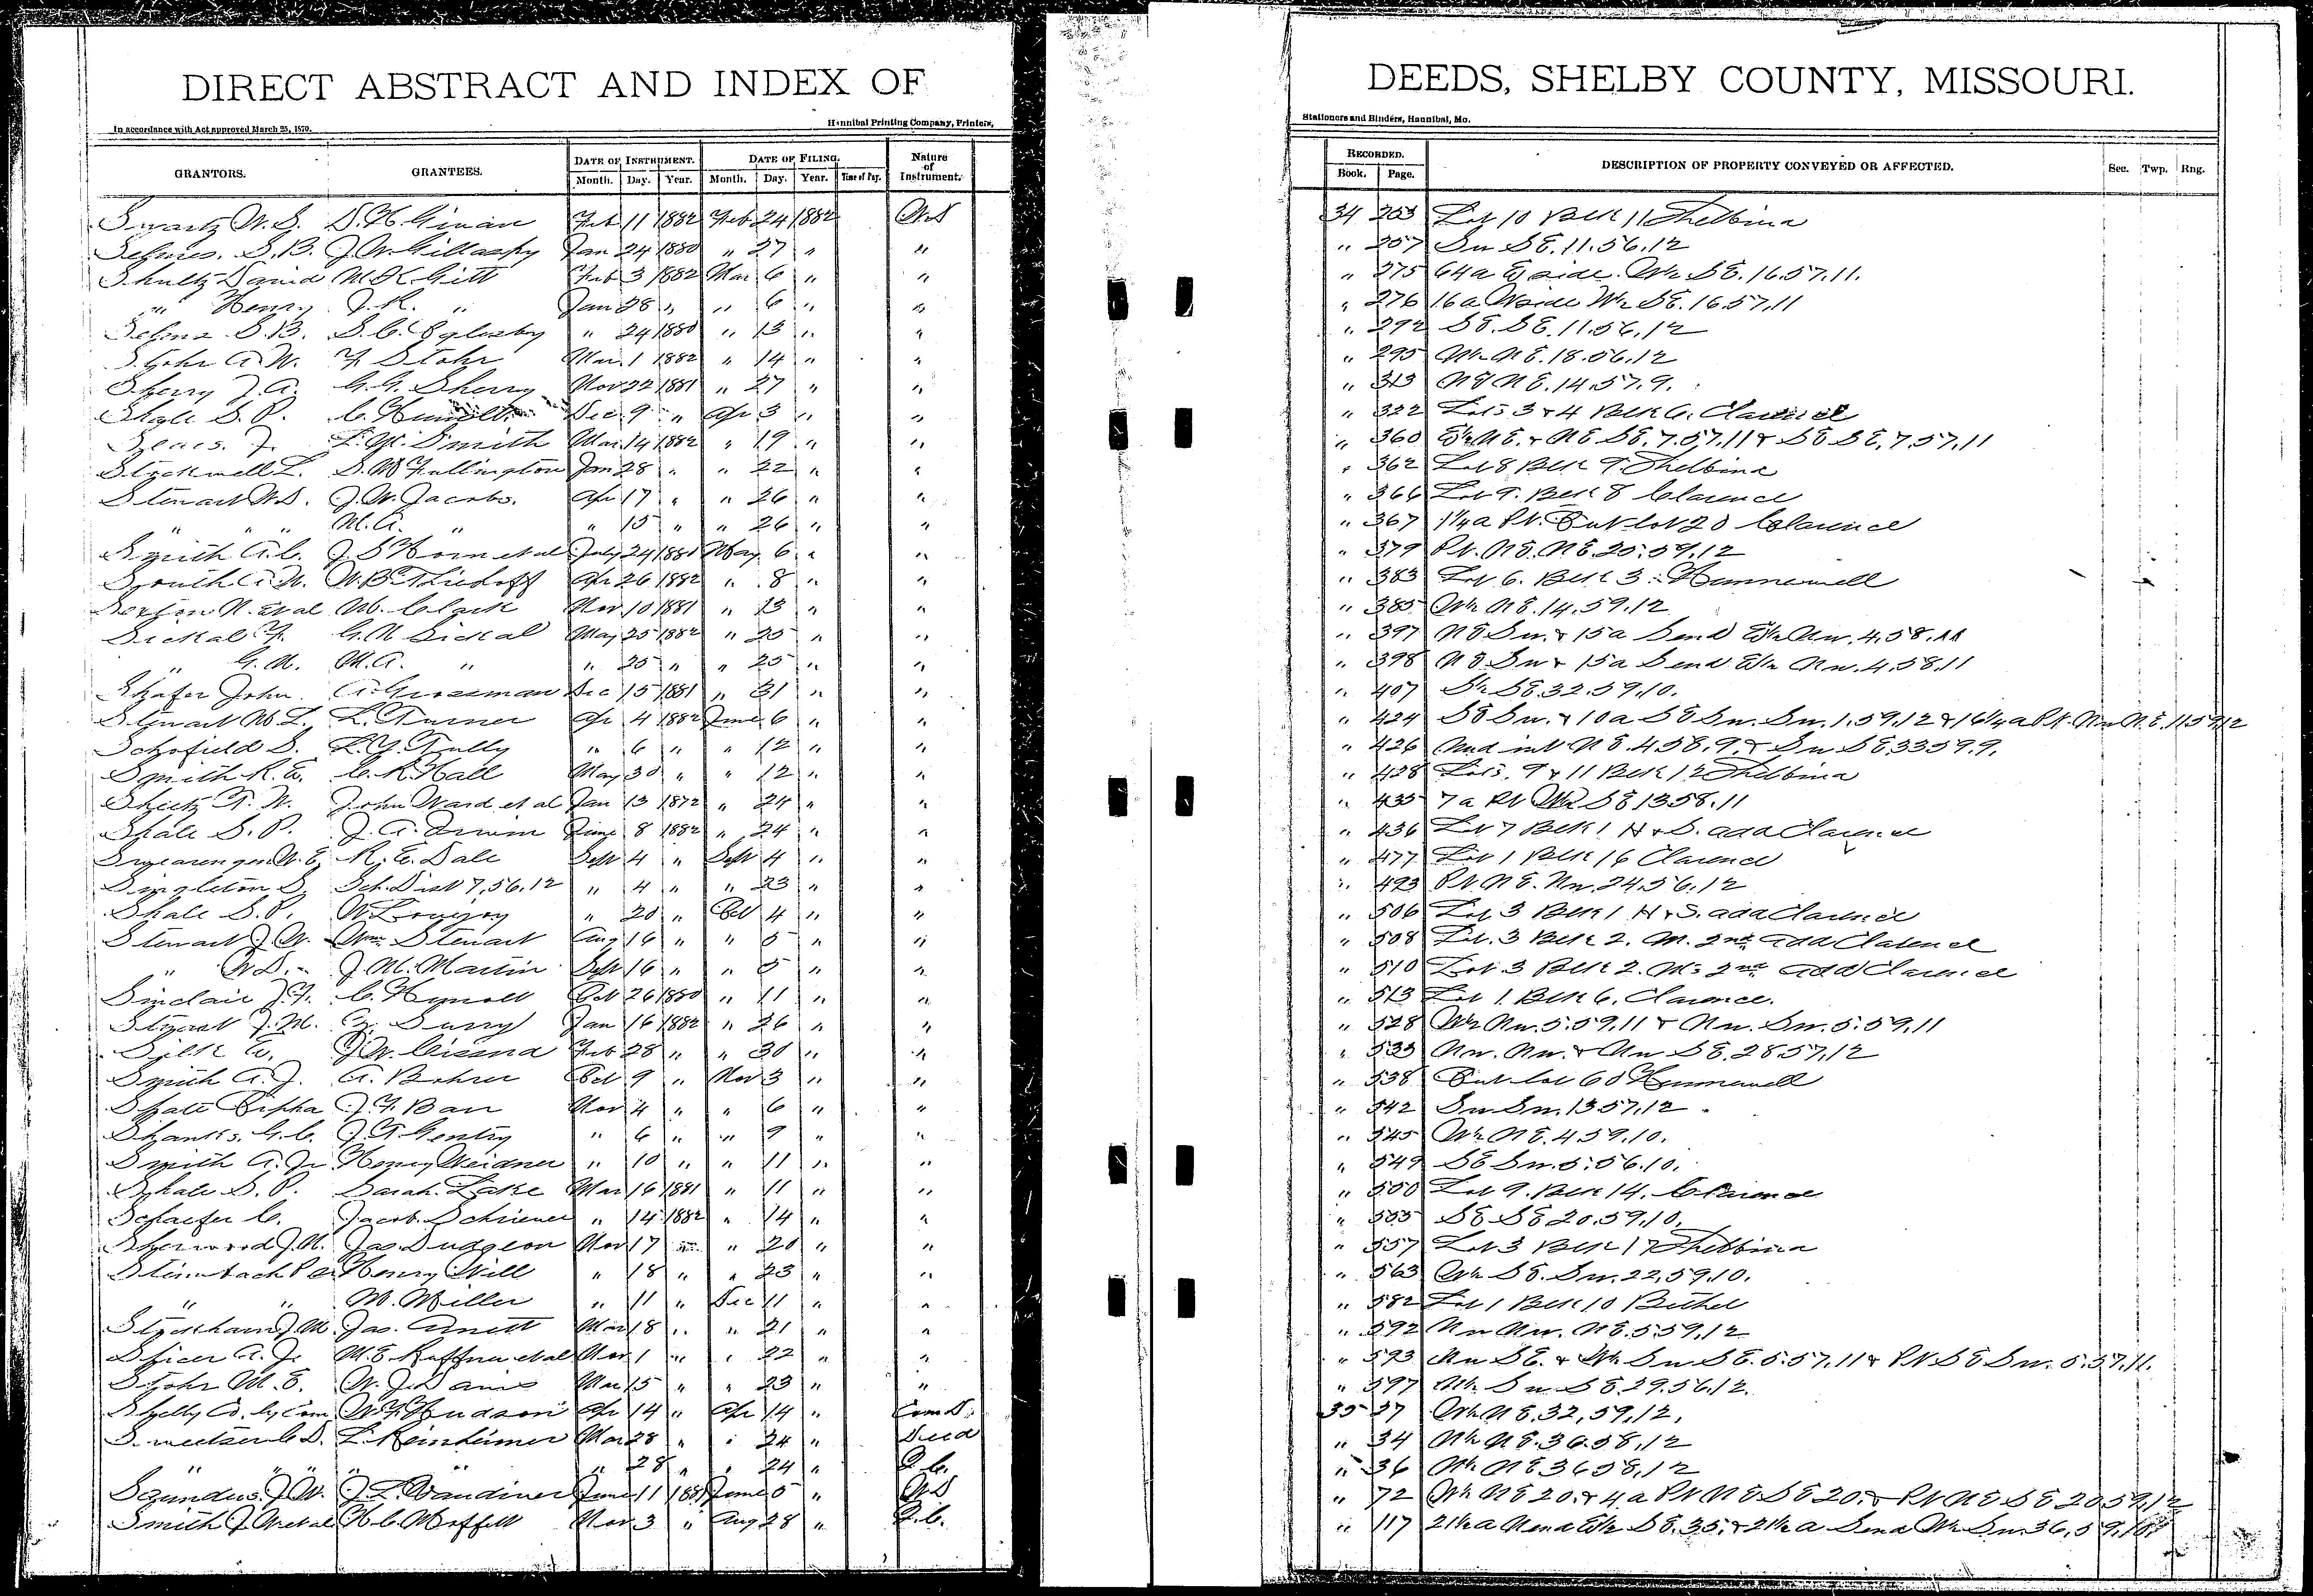 DIRECT ABSTRACT AND INDEX OF
DEEDS, SHELBY COUNTY, MISSOURI.
In accordance with Act approved March 25, 1870.
Hannibal Printing Company, Printers,
Stationers and Binders, Hannibal, Mo.
GRANTORS. GRANTEES. DATE OF INSTRUMENT. DATE OF FILING. Nature of Instrument.
Month. Day. Year. Month. Day. Year. Time of Day.
RECORDED. DESCRIPTION OF PROPERTY CONVEYED OR AFFECTED. Sec. Twp. Rng.
Book. Page.
Swartz W.S. Feb 11 1882 Feb 24 1882 WD 34 253 Lot 10 Blk 11 Shelbina
J.W. Gillaspy Jan 24 1880 " 27 " " " 257 Sw SE. 11.56.12
Shultz David Feb 3 1882 Mar 6 " " " 275 64a E side W½ SE. 16.57.11.
" Henry J.K. " Jan 28 " " 6 " " " 276 16a W side W½ SE. 16.57.11
S.B. S.C. Oglesby " 24 1880 " 13 " " " 292 SE. SE. 11.56.12
Stohr A.W. F. Stohr Mar. 1 1882 " 14 " " " 295 NE. 18.56.12
Sherry J.A. G.G. Sherry Nov 22 1881 " 27 " " " 313 NE NE. 14.57.9.
Shale S.P. Dec 9 " Apr 3 " " " 322 Lots 3 & 4 Blk 6. Clarence
Sears. J. Smith Mar. 14 1882 " 19 " " " 360 E½ NE. & NE SE. 7.57.11 & SE SE. 7.57.11
Stockwell L. S.W. Fullington Jan 28 " " 22 " " " 362 Lot 8 Blk 9 Shelbina
Stewart W.D. J.W. Jacobs. Apr 17 " " 26 " " " 366 Lot 9. Blk 8 Clarence
" " " M.A. " " 15 " " 26 " " " 367 1¼a Pt. Out lot 20 Clarence
Smith A.C. J.S. Horn et al July 24 1880 May 6 " " " 379 Pt. NE. NE. 20.59.12
Smith A.W. W.B. Thiehoff Apr 26 1882 " 8 " " " 383 Lot 6. Blk 3. Hunnewell
Sexton N. et al M. Clark Nov 10 1881 " 13 " " " 385 W½ NE. 14.59.12
Sickal F. G.N. Sickal May 25 1882 " 25 " " " 397 NE Sw. & 15a S end E½ Nw. 4.58.11
" G.N. M.A. " " 25 " " 25 " " " 398 NE Sw & 15a S end E½ Nw. 4.58.11
Shafer John. A. Grossman Dec 15 1881 " 31 " " " 407 S½ SE. 32.59.10.
Stewart M.L. L. Turner Apr 4 1882 June 6 " " " 424 SE Sw. & 10a SE Sw. Sw. 1.59.12 & 16¼a Pt. Nw NE. 11.59.12
Schofield S. L.Y. Tully " 6 " " 12 " " " 426 Und int NE. 4.58.9. & Sw SE. 33.59.9.
Smith R.E. C.R. Hall May 30 " " 12 " " " 428 Lots. 9 & 11 Blk 12 Shelbina
John Ward et al Jan 13 1872 " 24 " " " 435 7a Pt W½ SE 13.58.11
Shale S.P. J.A. Irwin June 8 1882 " 24 " " " 436 Lot 7 Blk 1 H & S. add Clarence
Swearengen W.E. R.E. Dale Sept 4 " Sept 4 " " " 477 Lot 1 Blk 16 Clarence
Singleton S. Sch. Dist 7.56.12 " 4 " " 23 " " " 493 Pt. NE. Nw. 24.56.12
Shale S.P. W. Lovejoy " 20 " Oct 4 " " " 506 Lot 3 Blk 1 H & S. add Clarence
Stewart J.W. Wm. Stewart Aug 16 " " 5 " " " 508 Lot. 3 Blk 2. M. 2nd add Clarence
" W.D. J.M. Martin Sept 16 " " 5 " " " 510 Lot 3 Blk 2. M. 2nd add Clarence
Sinclair J.F. C. Oct 26 1880 " 11 " " " 513 Lot 1. Blk 6. Clarence.
Stewart J.M. Jan 16 1882 " 26 " " " 528 W½ Nw. 5.59.11 & Nw. Sw. 5.59.11
Silk E. J.W. Feb 28 " " 30 " " " 533 Nw. Nw. & Nw SE. 28.57.12
Smith A.J. A. Bohrer Oct 9 " Nov 3 " " " 538 Out lot 60 Hunnewell
J.F. Barr Nov 4 " " 6 " " " 542 Sw Sw. 13.57.12
Shanks. G.C. Gentry " 6 " " 9 " " " 545 W½ NE. 4.59.10.
Smith A. Jr. Henry Weidner " 10 " " 11 " " " 549 SE Sw. 5.56.10.
Shale S.P. Sarah Lake Mar 16 1881 " 11 " " " 550 Lot 9. Blk 14. Clarence
Schaefer C. Jacob Schriever " 14 1882 " 14 " " " 555 SE SE 20.59.10.
Sherwood J.N. Jas. Dudgeon Nov 17 " " 20 " " " 557 Lot 3 Blk 17 Shelbina
Steinbach Henry Will " 18 " " 23 " " " 563 W½ SE. Sw. 22.59.10.
" " M. Miller " 11 " Dec 11 " " " 582 Lot 1 Blk 10 Bethel
Jas. Mar 18 " " 21 " " " 592 Nw Nw. NE. 5.59.12
Spicer A.J. M.E. et al Nov 1 " " 22 " " " 593 Nw SE. & W½ Sw SE. 5.57.11 & Pt. SE Sw. 5.57.11.
Stohr M.E. W.J. Davis Mar 15 " " 23 " " " 597 N½ Sw SE. 29.56.12.
Shelby Co. by Com W.F. Hudson Apr 14 " Apr 14 " Com D. 35 27 NE. 32.59.12.
Sweetser C.D. L. Reinheimer Mar 28 " " 24 " Deed " 34 N½ NE. 36.58.12
" " " " " 28 " " 24 " Q.C. " 36 N½ NE 36.58.12
Saunders. J.W. J.L. Vandiver June 11 1881 June 5 " WD " 72 W½ NE 20. & 4a Pt NE SE 20. & Pt NE SE 20.59.12
Smith J.W. et al H.C. Moffett Nov 3 " Aug 28 " Q.C. " 117 21½a N end E½ SE. 35. & 21½a S end W½ Sw. 36.59.10.